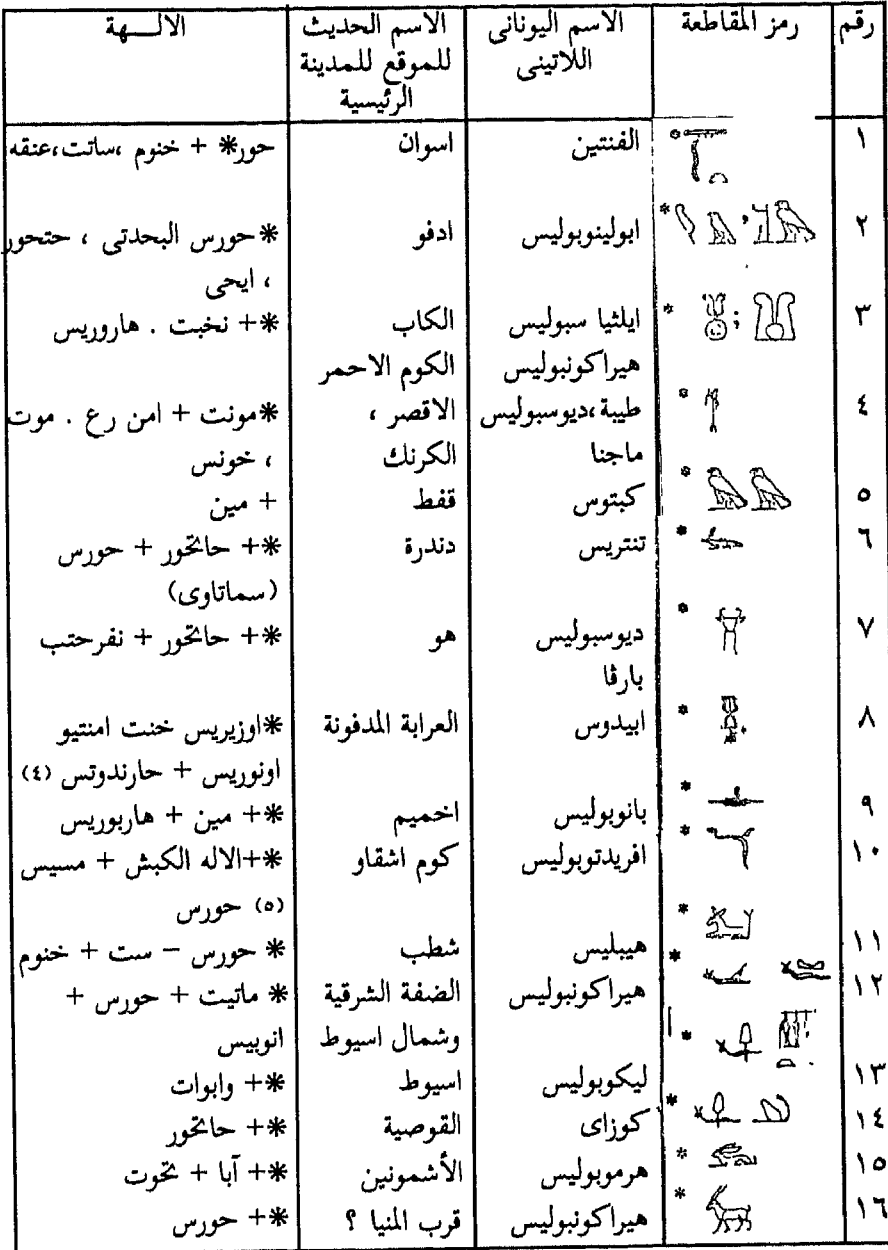 رقم رمز المقاطعة الاسم اليونانى اللاتينى الاسم الحديث للموقع للمدينة الرئيسية الالـــهة
١ الفنتين اسوان حور* + خنوم ،ساتت،عنقه
٢ ابولينوبوليس ادفو *حورس البحدتى ، حتحور
، ايحى
٣ ايلثيا سبوليس الكاب *+ نخبت . هاروريس
هيراكونبوليس الكوم الاحمر
٤ طيبة،ديوسبوليس الاقصر ، *مونت + امن رع . موت
ماجنا الكرنك ، خونس
٥ كبتوس قفط + مين
٦ تنتريس دندرة *+ حاتحور + حورس
(سماتاوى)
٧ ديوسبوليس هو *+ حاتحور + نفرحتب
بارڤا
٨ ابيدوس العرابة المدفونة *اوزيريس خنت امنتيو
اونوريس + حارندوتس (٤)
٩ بانوبوليس اخميم *+ مين + هاربوريس
١٠ افريدتوبوليس كوم اشقاو *+الاله الكبش + مسيس
(٥) حورس
١١ هيبليس شطب * حورس – ست + خنوم
١٢ هيراكونبوليس الضفة الشرقية * ماتيت + حورس +
وشمال اسيوط انوبيس
١٣ أ ليكوبوليس اسيوط *+ وابوات
١٤ كوزاى القوصية *+ حاتحور
١٥ هرموبوليس الأشمونين *+ آبا + تحوت
١٦ هيراكونبوليس قرب المنيا ؟ *+ حورس